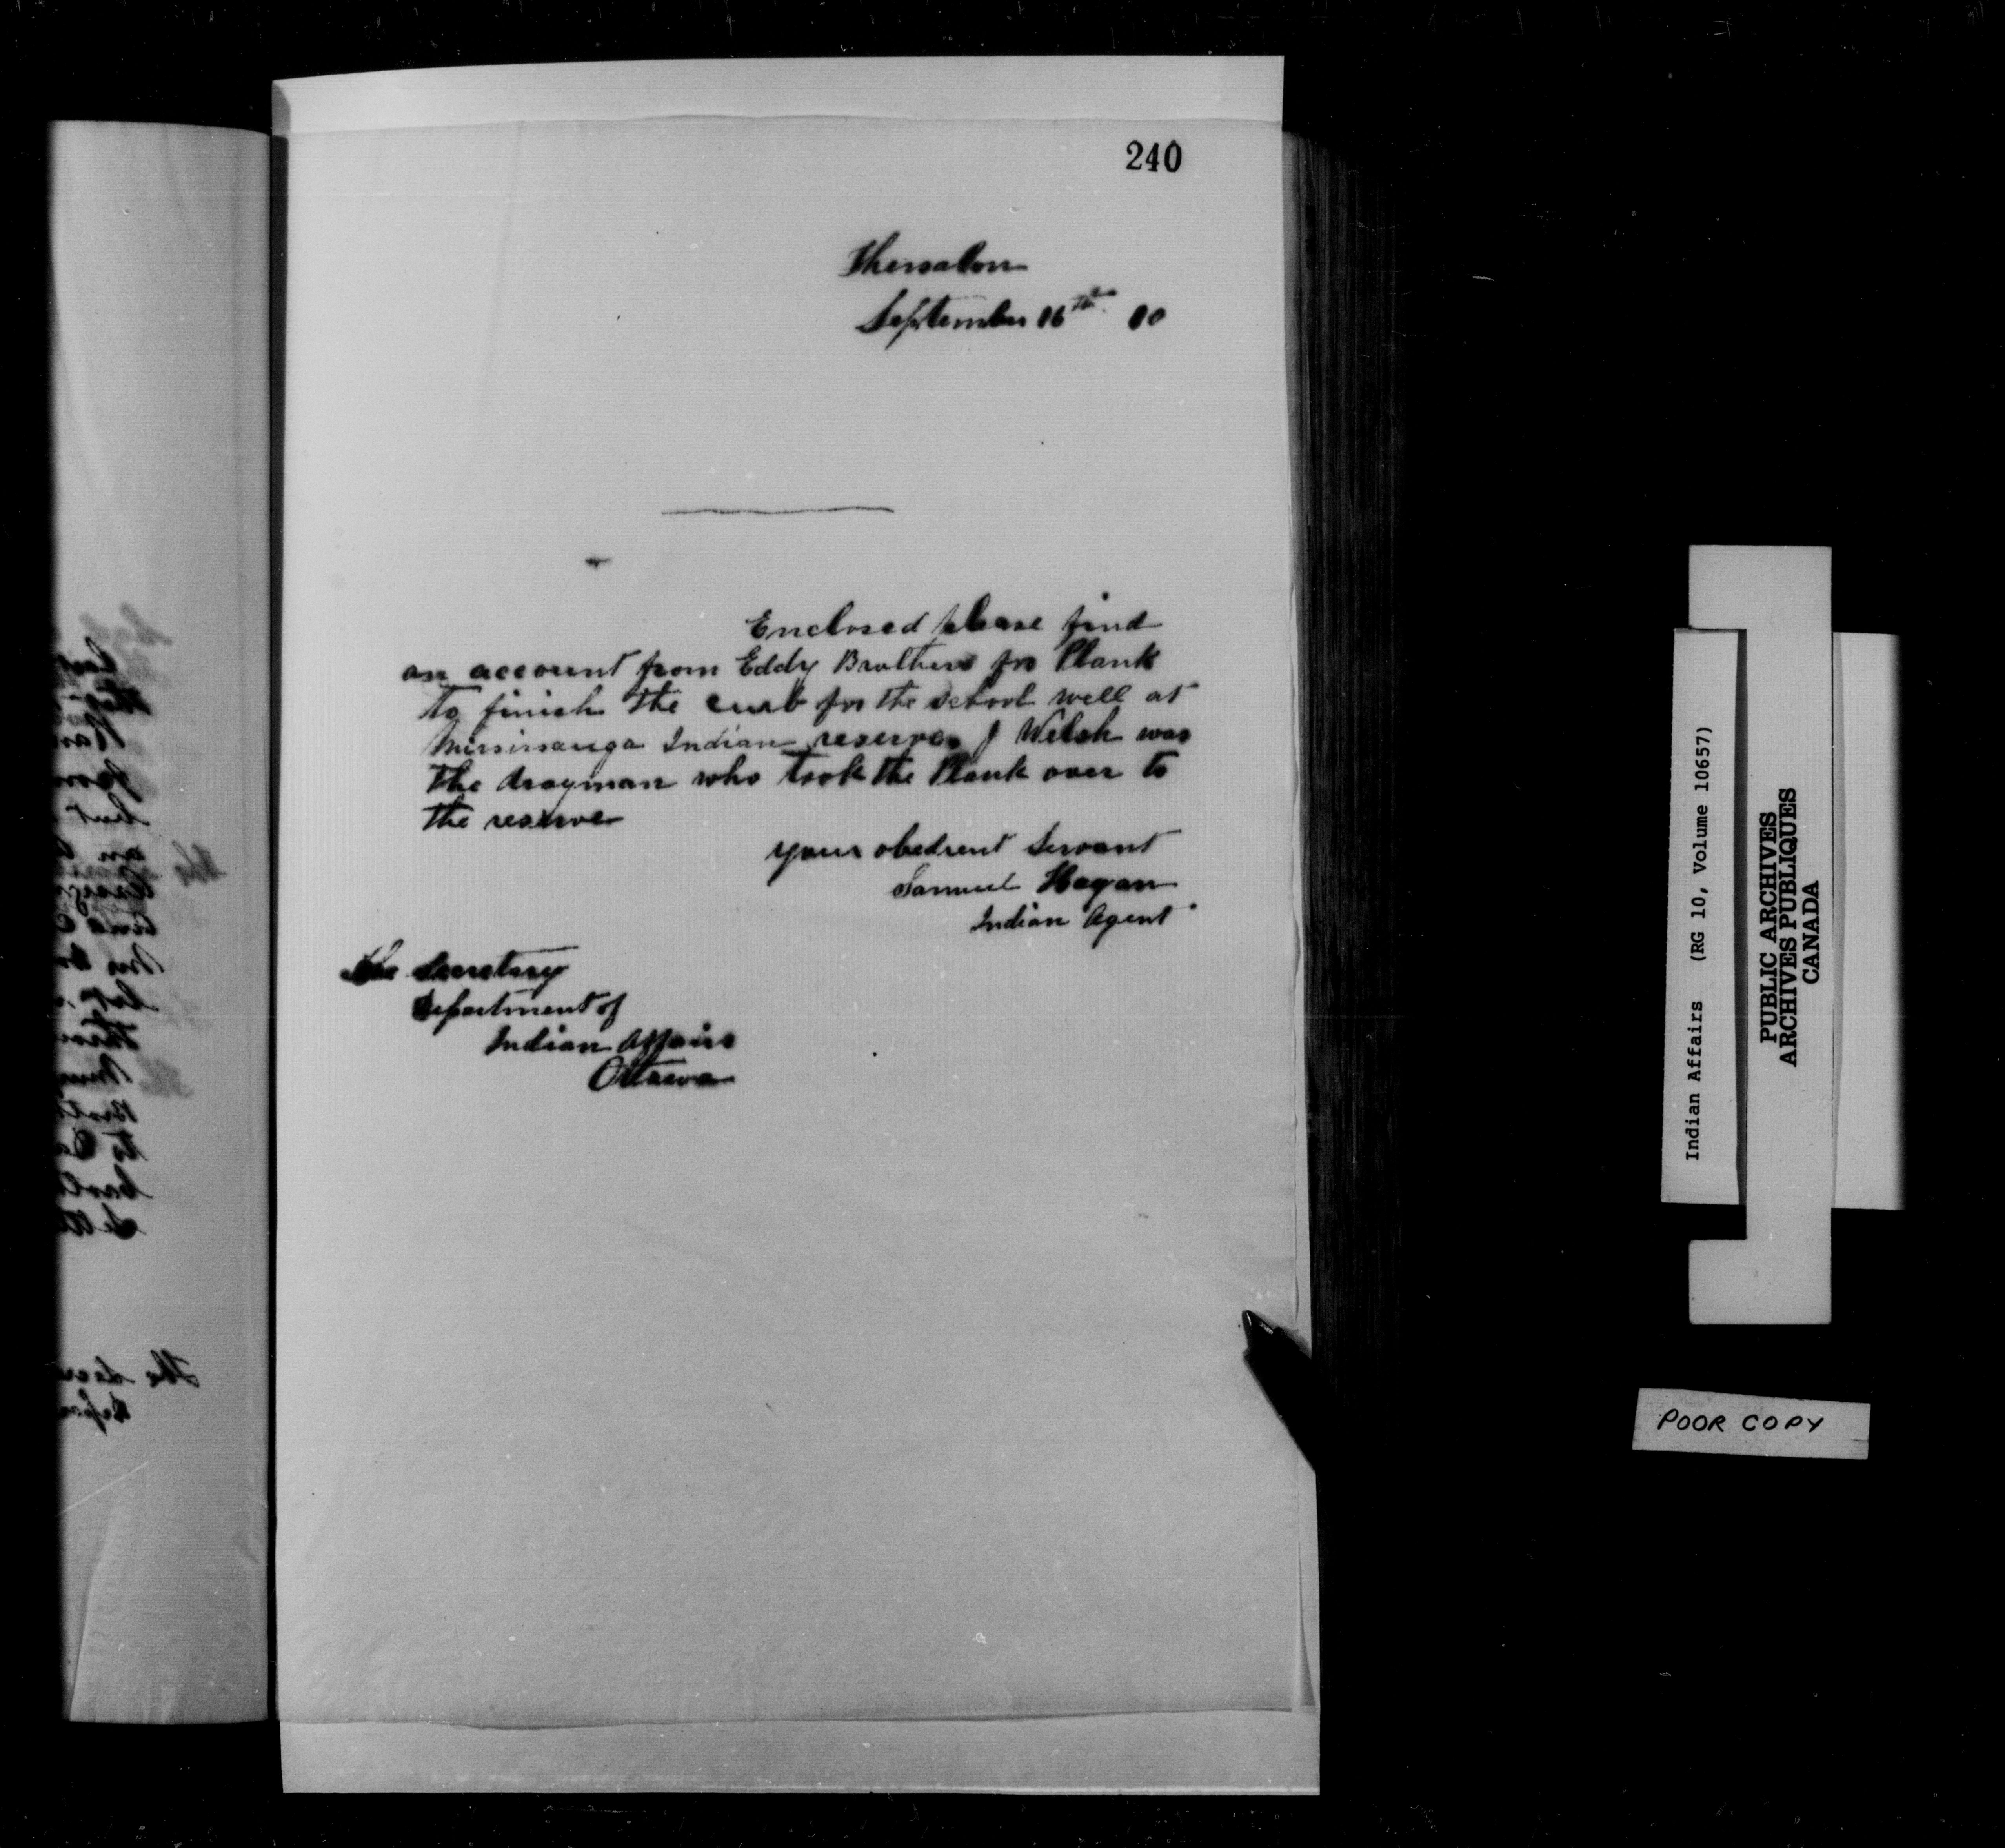 240
Thessalon
September 16th 10
Enclosed please find
an account from Eddy Brothers for Plank
to finish the curb for the school well at
Mississauga Indian reserve J Welsh was
the drayman who took the Plank over to
the reserve
your obedient Servant
Samuel Hagan
Indian Agent
The Secretary
Department of
Indian Affairs
Ottawa
Indian Affairs (RG 10, Volume 10657)
PUBLIC ARCHIVES
ARCHIVES PUBLIQUES
CANADA
POOR COPY